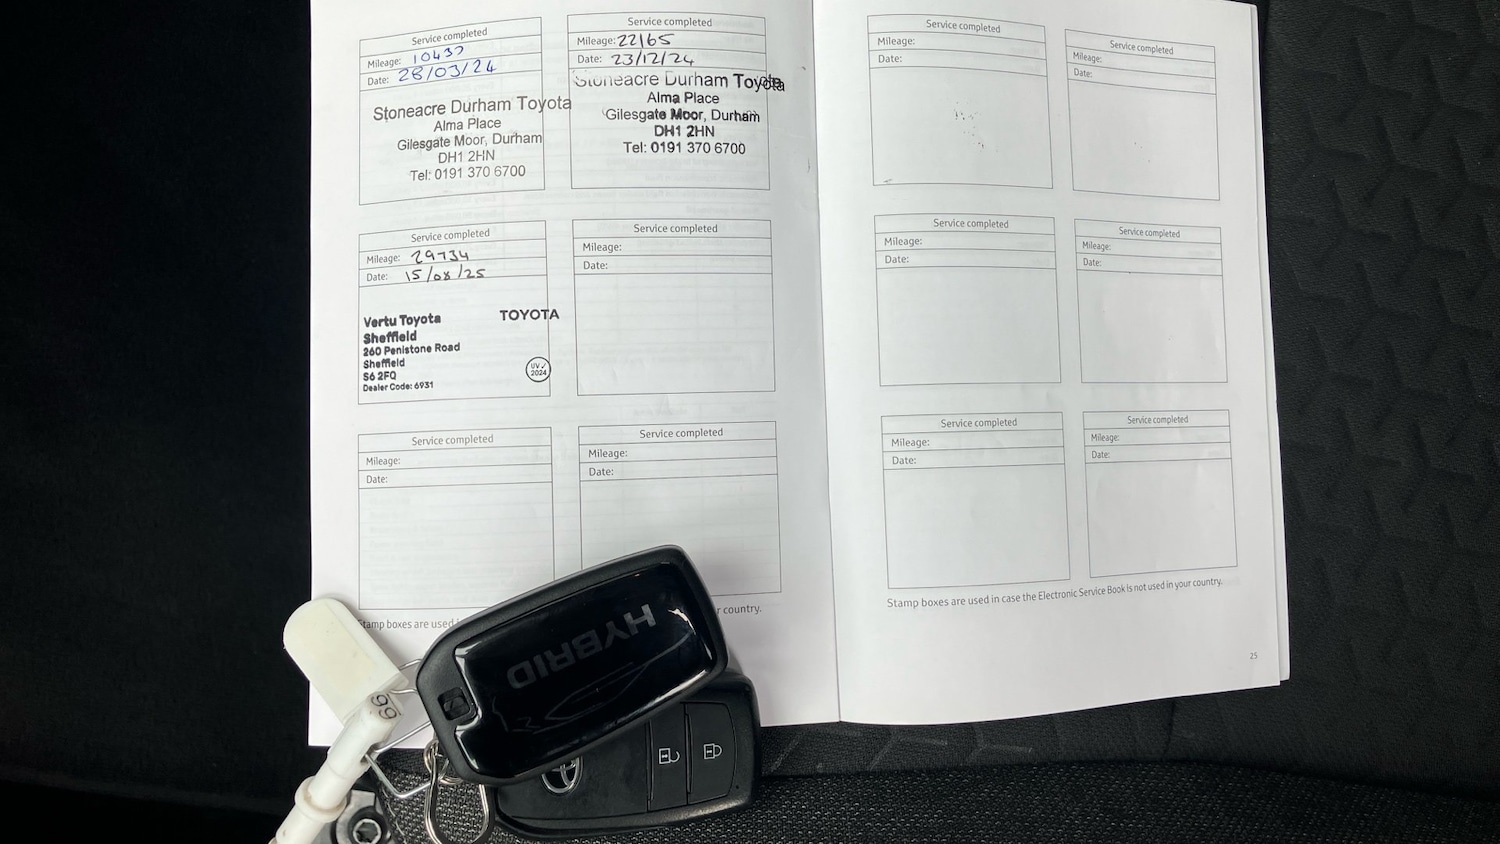 Service completed
Mileage: 10437
Date: 28/03/24
Stoneacre Durham Toyota
Alma Place
Gilesgate Moor, Durham
DH1 2HN
Tel: 0191 370 6700
Service completed
Mileage: 22165
Date: 23/12/24
Stoneacre Durham Toyota
Alma Place
Gilesgate Moor, Durham
DH1 2HN
Tel: 0191 370 6700
Service completed
Mileage: 29734
Date: 15/08/25
Vertu Toyota
Sheffield
260 Penistone Road
Sheffield
S6 2FQ
Dealer Code: 6931
TOYOTA
UV✓
2024
Service completed
Mileage:
Date:
Service completed
Mileage:
Date:
Service completed
Mileage:
Date:
Stamp boxes are used
r country.
Service completed
Mileage:
Date:
Service completed
Mileage:
Date:
Service completed
Mileage:
Date:
Service completed
Mileage:
Date:
Service completed
Mileage:
Date:
Service completed
Mileage:
Date:
Stamp boxes are used in case the Electronic Service Book is not used in your country.
25
HYBRID
99